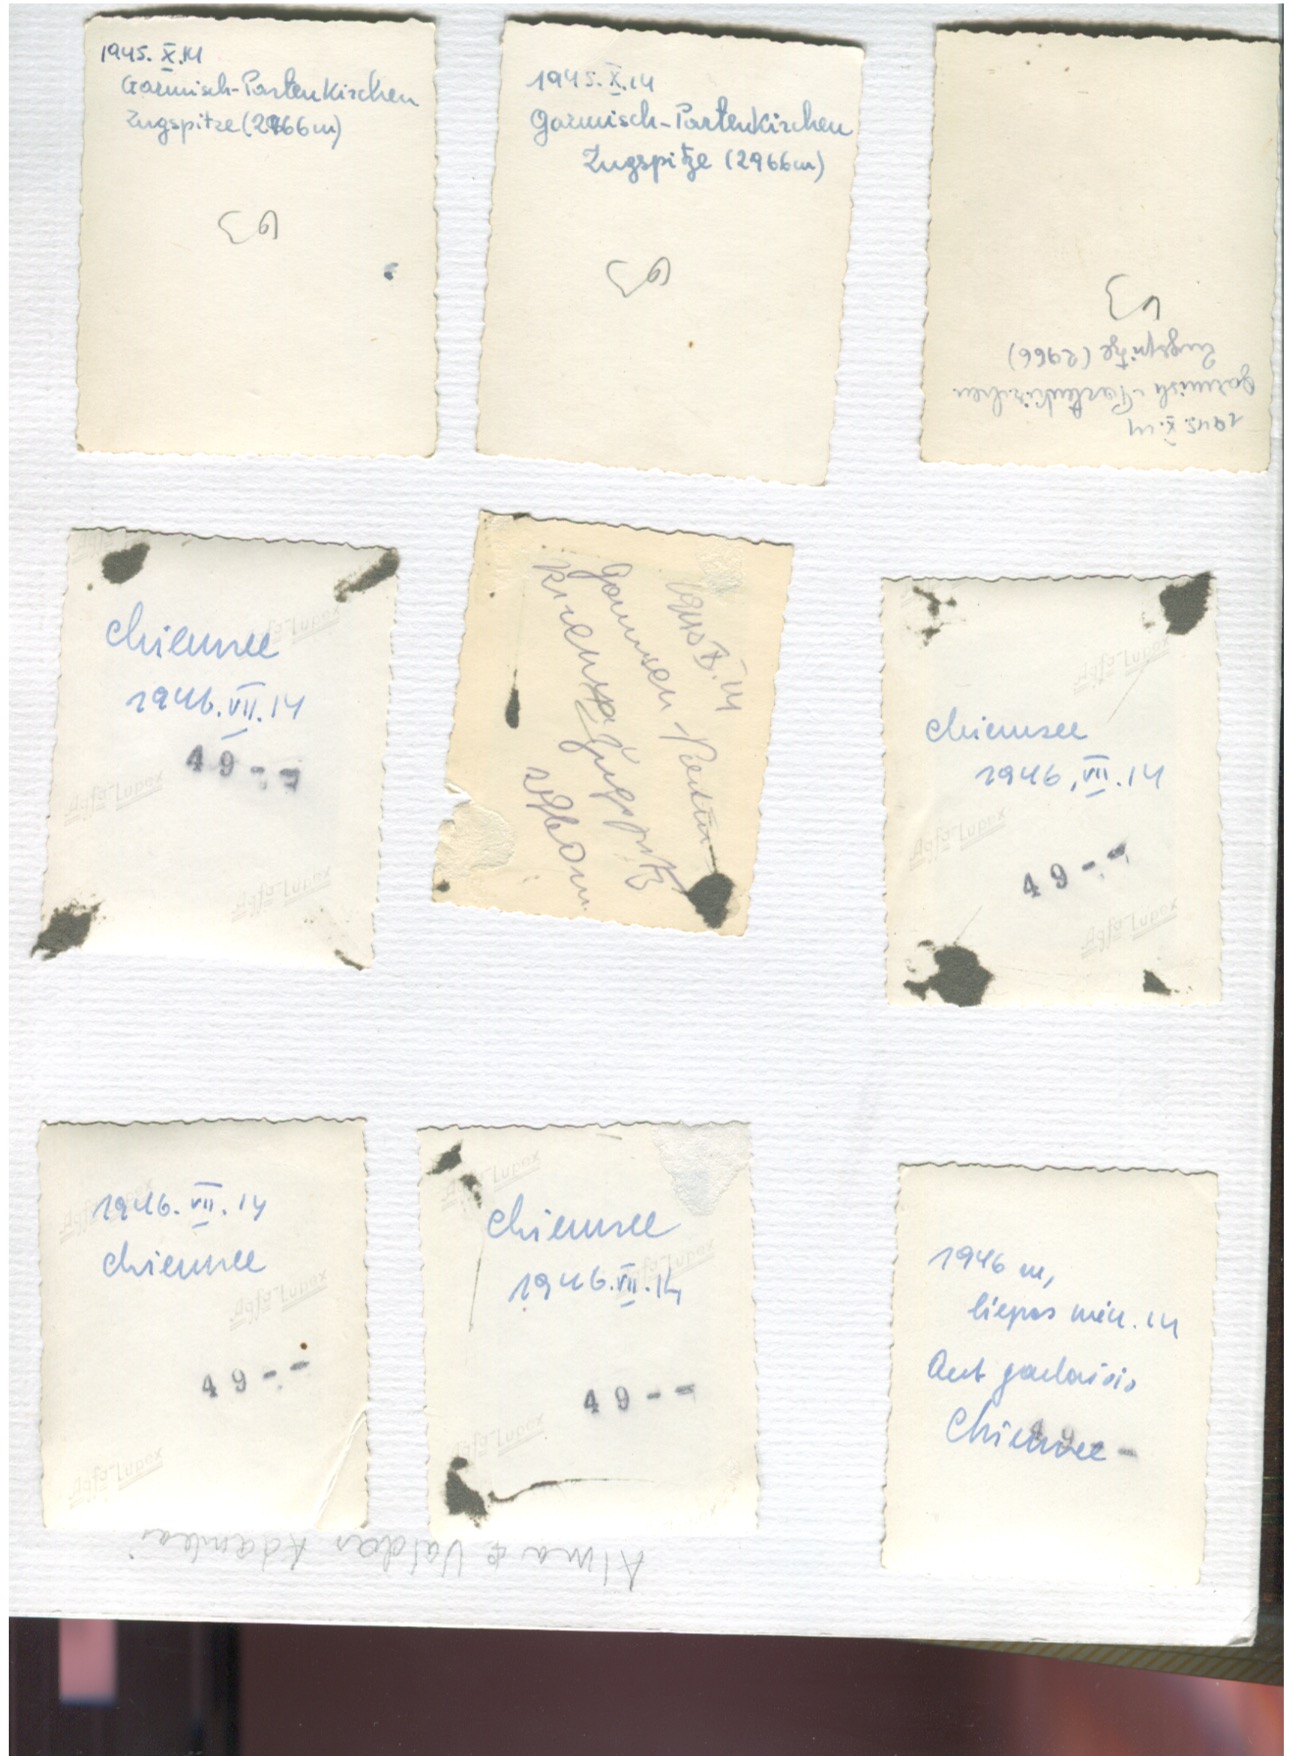 1945.X.14
Garmisch-Partenkirchen
Zugspitze (2966m)
63
1945.X.14
Garmisch-Partenkirchen
Zugspitze (2966m)
63
1945.X.14
Garmisch-Partenkirchen
Zugspitze (2966)
Chiemsee
1946.VII.14
49--
Agfa-Lupex
Agfa-Lupex
Agfa-Lupex
1945.X.14
2966m
Chiemsee
1946.VII.14
49--
Agfa-Lupex
Agfa-Lupex
Agfa-Lupex
1946.VII.14
Chiemsee
49--
Agfa-Lupex
Agfa-Lupex
Chiemsee
1946.VII.14
49--
Agfa-Lupex
Agfa-Lupex
Agfa-Lupex
1946 m,
liepos mėn. 14
Ant
Chiemsee
49--
Alma & Valdas Adamkai